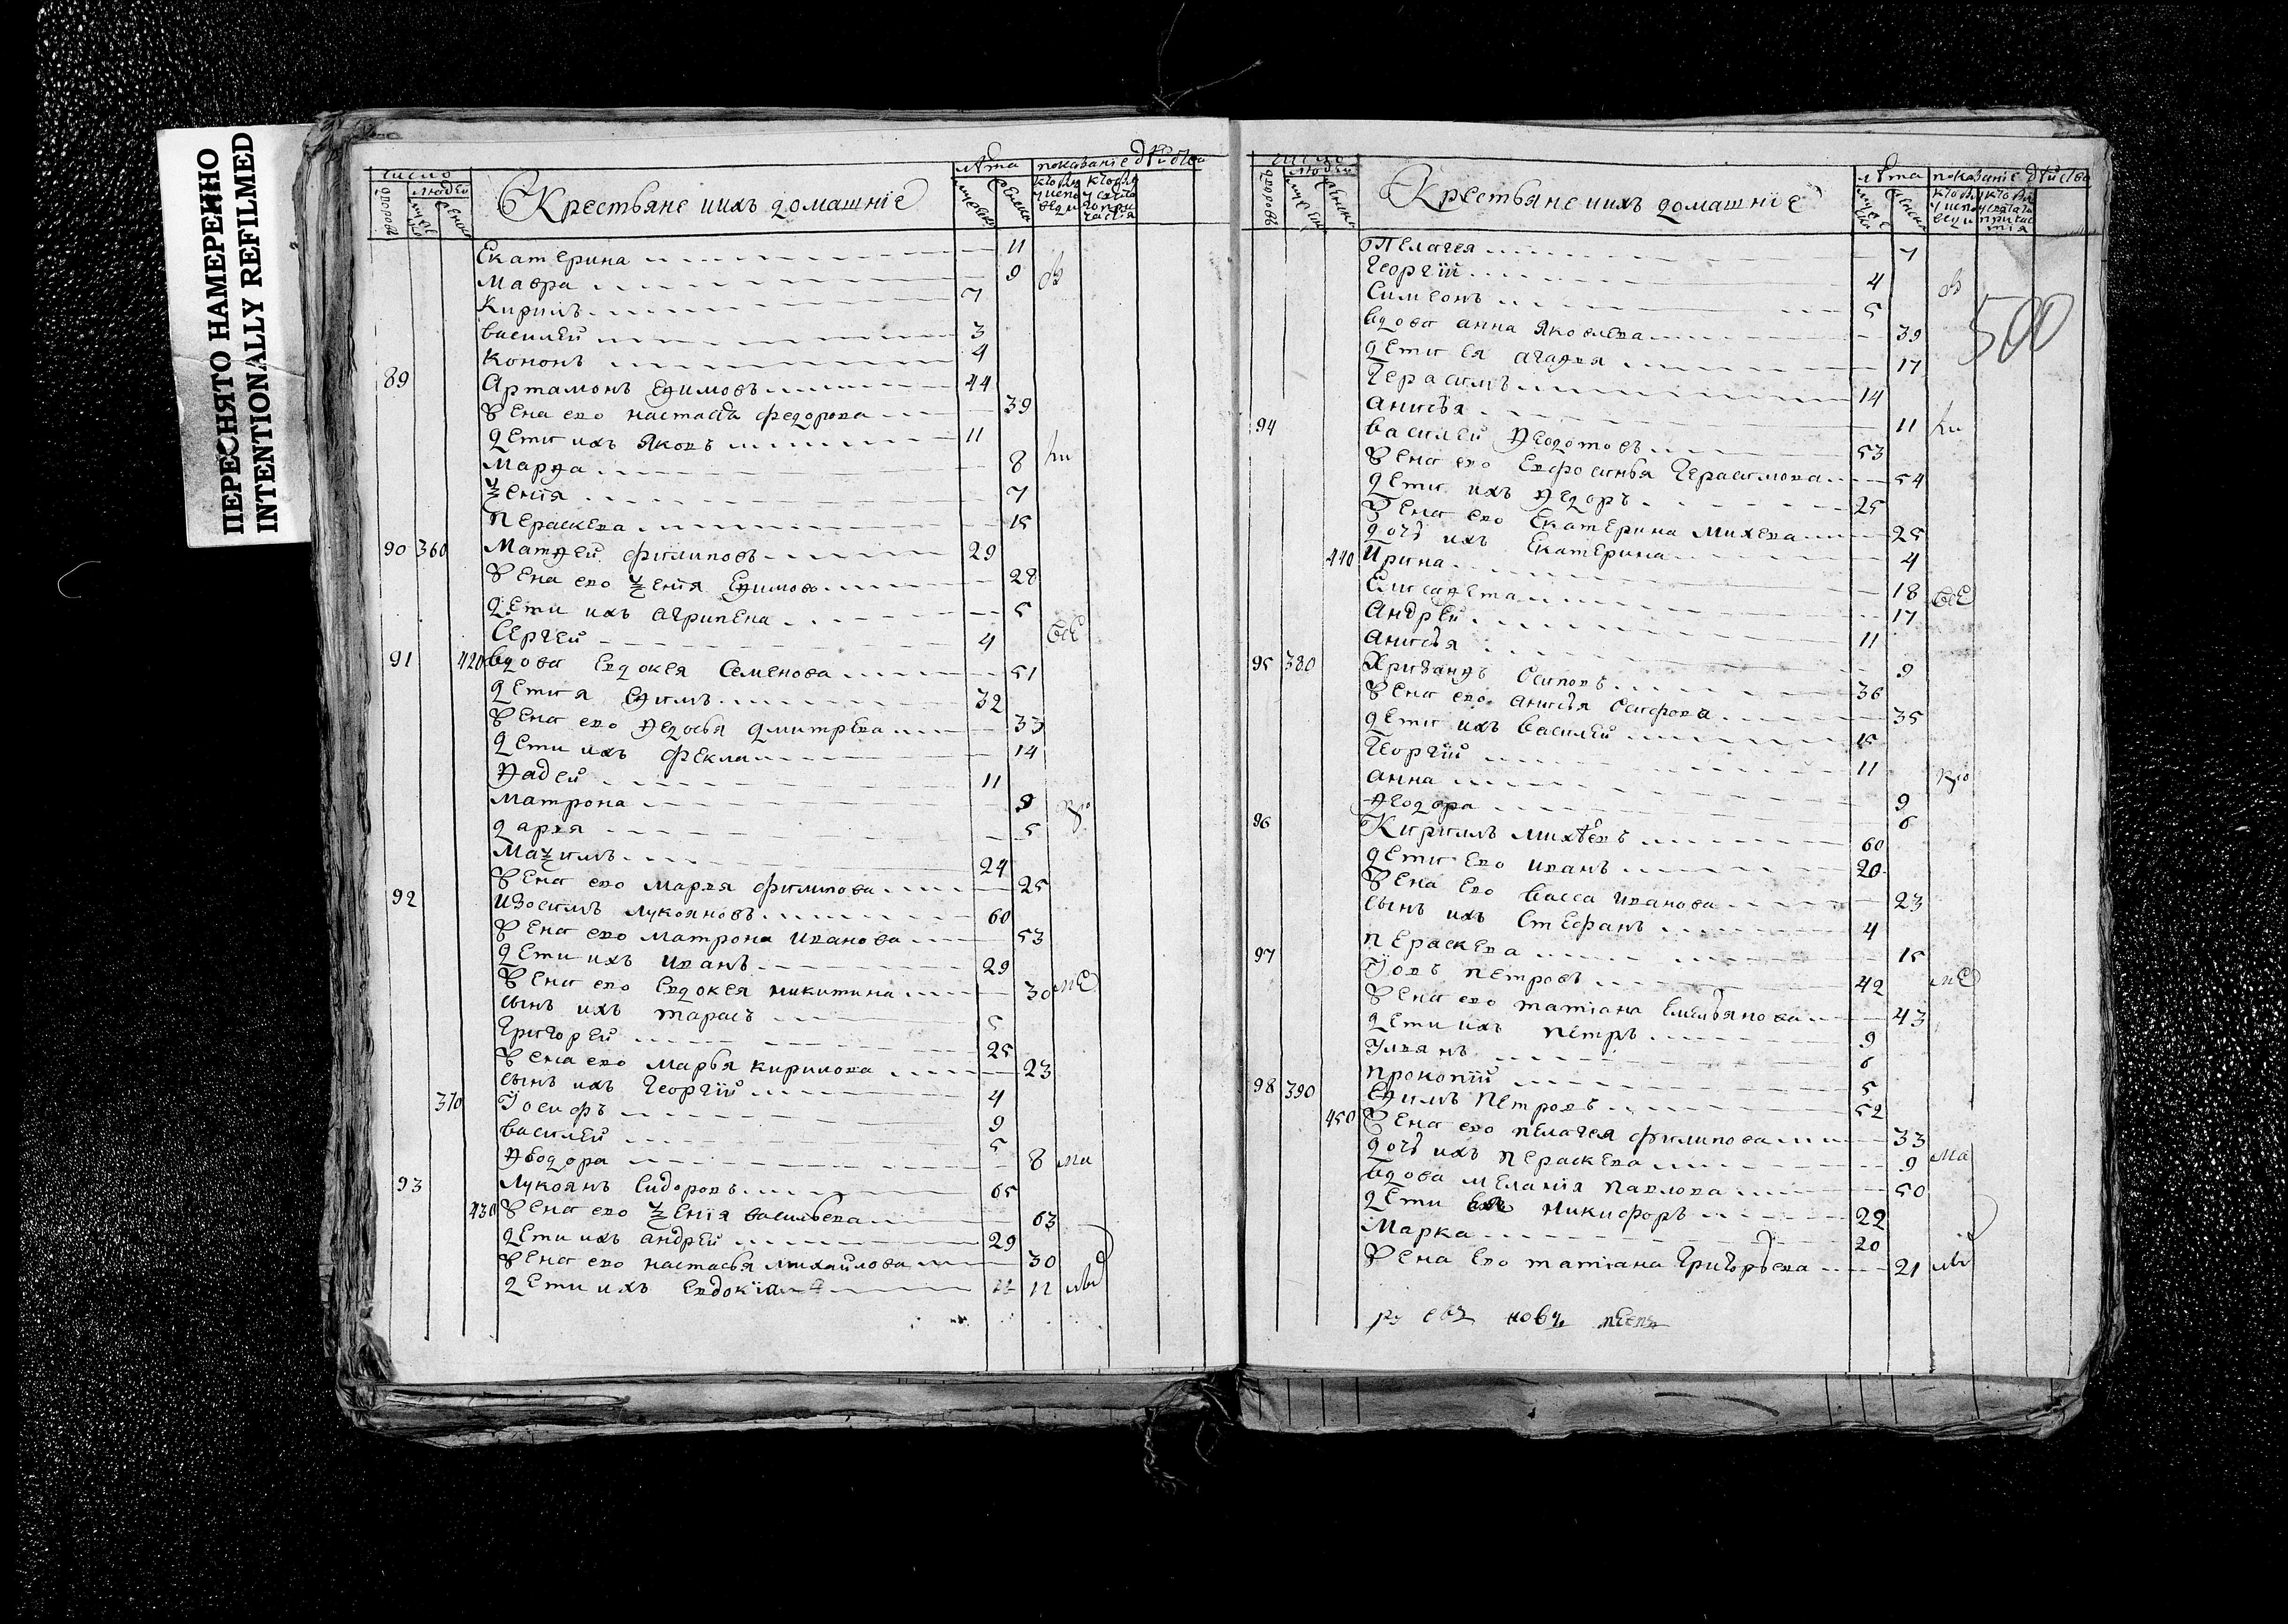 ПЕРЕСНЯТО НАМЕРЕННО
INTENTIONALLY REFILMED
число
людей
дворовъ
Крестьяне иихъ домашніе
лѣта
показаніе дѣйства
Екатерина 11
Мавра 9
Кирилъ 7
василей 3
Кононъ 4
89 Артамонъ Еѳимовъ 44
Жена ево настасья федорова 39
дети ихъ Яковъ 11
Марѳа 8
Ѯенія 7
Пераскева 15
90 360 Матѳей филиповъ 29
Жена ево Ѯенія Еѳимова 28
дети ихъ агрипена 5
Сергей 4
91 420 вдова Евдокея Семенова 51
дети я Еѳимъ 32
Жена ево Ѳедосья дмитрева 33
дети ихъ фекла 14
Ѳадей 11
матрона 9
дарья 5
Маѯимъ 24
Жена ево Марья филипова 25
92 Изосимъ лукояновъ 60
Жена ево матрона Иванова 53
дети ихъ иванъ 29
Жена ево Евдокея никитина 30
сынъ ихъ тарасъ 5
Григорей 25
Жена ево марья кирилова 23
сынъ ихъ Георгій 4
370 Іосифъ 9
василей 5
Ѳеодора 8
93 лукоянъ Сидоровъ 65
430 Жена ево Ѯенія васильева 63
дети ихъ андрей 29
Жена ево настасья михайлова 30
дети ихъ Евдокіа 11
число
людей
дворовъ
Крестьяне иихъ домашніе
лѣта
показаніе дѣйства
Пелагея 7
Георгій 4
Симеонъ 5
500
вдова анна Яковлева 39
дети ея агаѳья 17
Герасимъ 14
анисья 11
94 василей Ѳедотовъ 53
Жена ево Евфросинья Герасимова 54
дети ихъ Ѳедоръ 25
Жена ево Екатерина Михева 25
дочь ихъ Екатерина 4
440 Ирина 18
Елисавета 17
Андрей 11
анисья 9
95 380 Хрисанѳъ Осиповъ 36
Жена ево анисья Осифова 35
дети ихъ василей 15
Георгій 11
анна 9
Ѳеодора 6
96 Кирилъ михѣевъ 60
дети ево иванъ 20
Жена Ево васса иванова 23
сынъ ихъ Стефанъ 4
Пераскева 15
97 Іовъ петровъ 42
Жена ево татіана Емельянова 43
дети ихъ петръ 9
Улянъ 6
прокопій 5
98 390 Еѳимъ петровъ 52
450 Жена ево пелагея филипова 33
дочь ихъ пераскева 9
вдова меланія павлова 50
дети никифоръ 22
Марка 20
Жена Ево татіана Григорьева 21